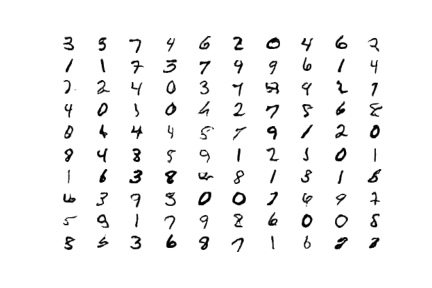 3 5 7 4 6 2 0 4 6 2
1 1 7 3 7 9 9 6 1 4
2 2 4 0 3 7 9 2 7
4 0 1 0 4 2 7 5 6 8
0 4 4 4 5 7 9 1 2 0
9 4 8 5 9 1 2 5 0 1
1 6 3 8 4 8 1 3 1 8
6 3 9 5 0 0 7 6 9 7
5 9 1 7 9 8 6 0 0 8
8 5 3 6 8 7 1 6 2 2